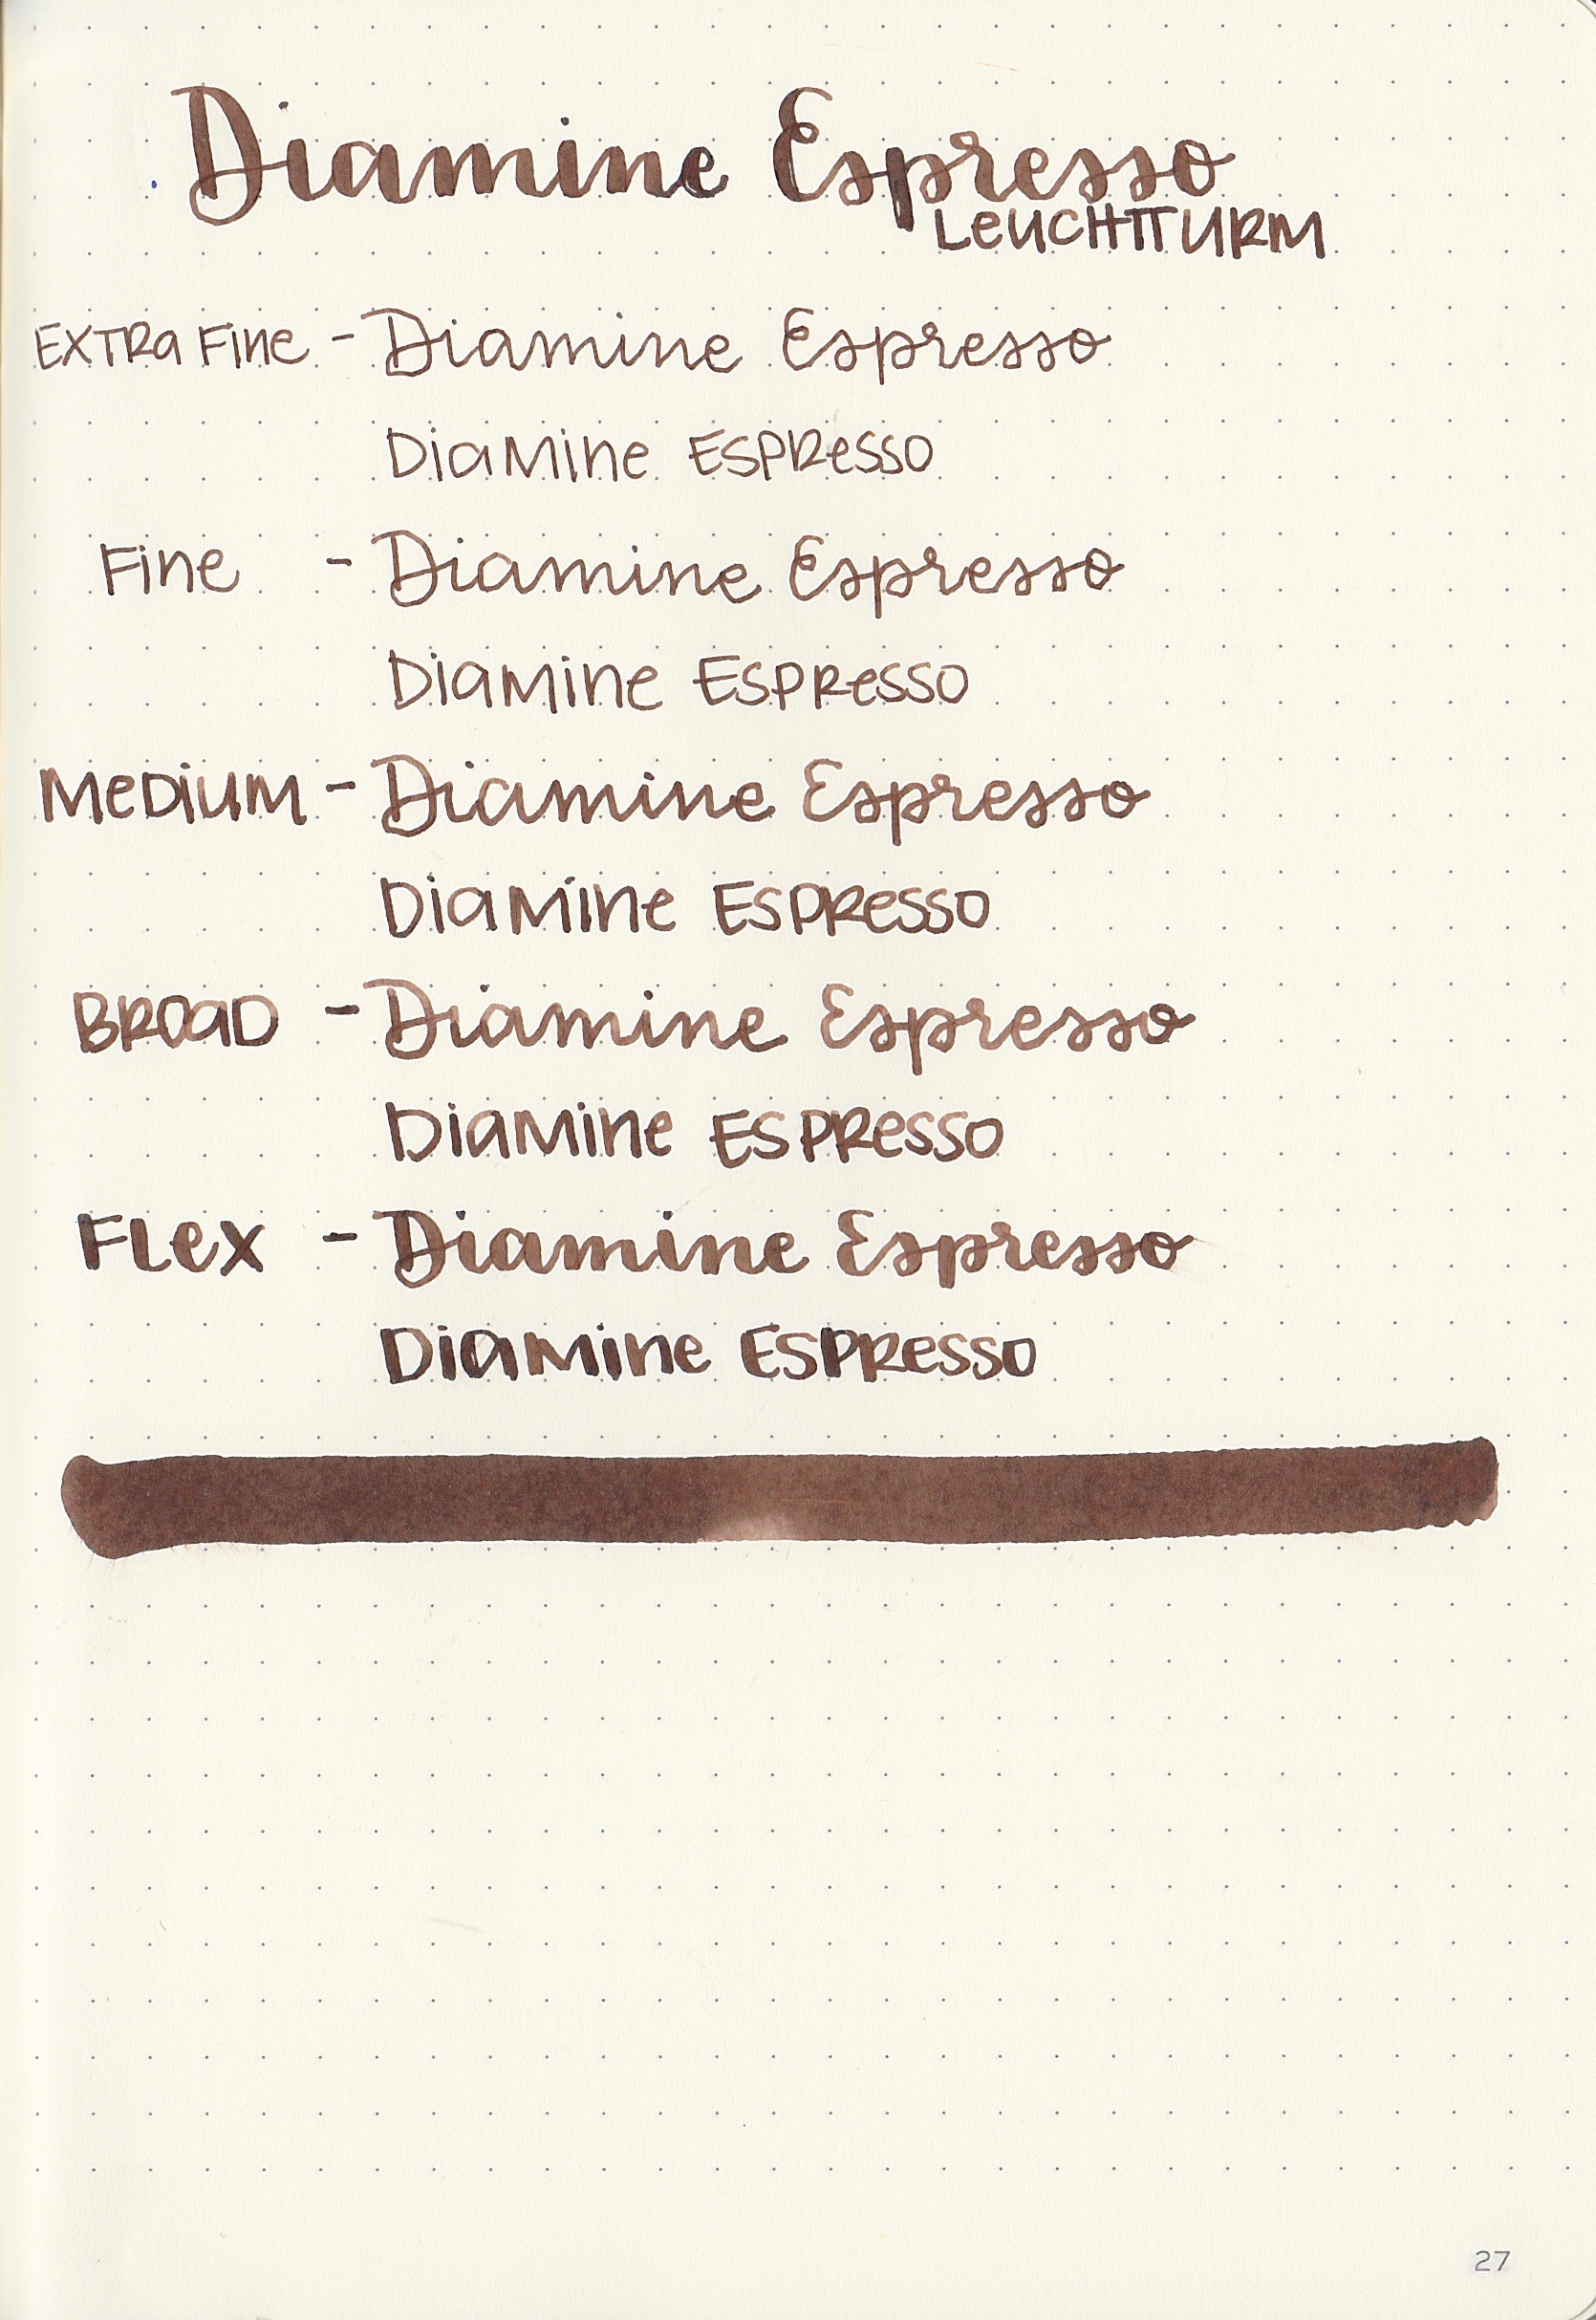 Diamine Espresso
LEUCHTTURM
EXTRa Fine - Diamine Espresso
DiaMine ESPResso
Fine - Diamine Espresso
DiaMine ESPResso
MeDiuM - Diamine Espresso
DiaMine ESPResso
BROaD - Diamine Espresso
DiaMine ESPResso
FLex - Diamine Espresso
DiaMine ESPResso
27